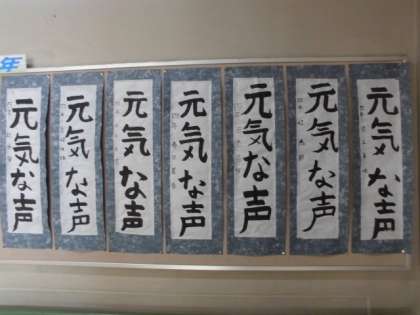 年
元気な声
元気な声
元気な声
元気な声
元気な声
元気な声
元気な声